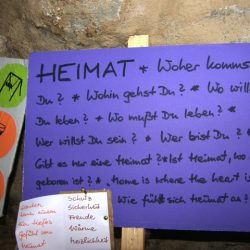 HEIMAT * Woher kommst
Du? * Wohin gehst Du? * Wo willst
Du leben? * Wo mußt Du leben? *
Wer willst Du sein? * Wer bist Du? *
Gibt es nur eine Heimat? * Ist Heimat, wo
geboren ist? * Home is where the heart is
Wie fühlt sich Heimat an?
kann einem
ein tiefes
Gefühl von
Heimat
Schutz
Sicherheit
Freude
Wärme
Herzlichkeit